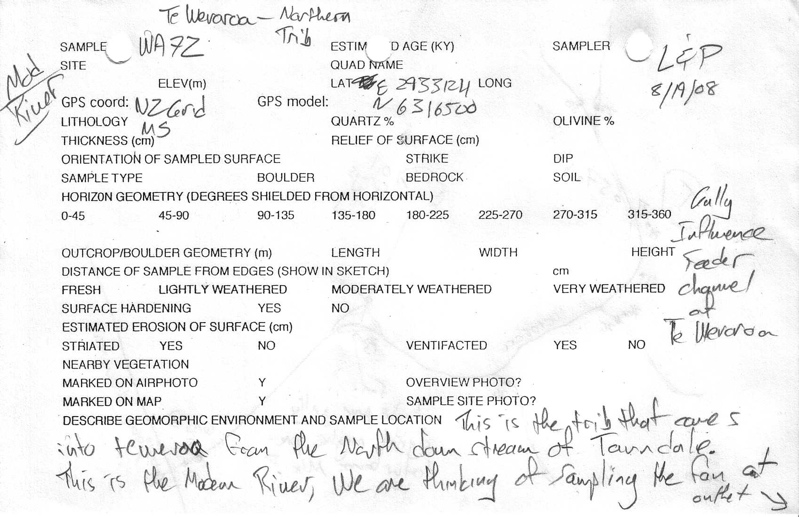 Te Weraroa - Northern
Trib
SAMPLE WA7Z ESTIM D AGE (KY) SAMPLER L&P
SITE QUAD NAME
Mod
River
ELEV(m) LAT E 2933124 LONG 8/19/08
GPS coord: NZ Grid GPS model: N 6316500
LITHOLOGY MS QUARTZ % OLIVINE %
THICKNESS (cm) RELIEF OF SURFACE (cm)
ORIENTATION OF SAMPLED SURFACE STRIKE DIP
SAMPLE TYPE BOULDER BEDROCK SOIL
HORIZON GEOMETRY (DEGREES SHIELDED FROM HORIZONTAL)
0-45 45-90 90-135 135-180 180-225 225-270 270-315 315-360
Gully
Influence
Feeder
channel
at
Te Weraroa
OUTCROP/BOULDER GEOMETRY (m) LENGTH WIDTH HEIGHT
DISTANCE OF SAMPLE FROM EDGES (SHOW IN SKETCH) cm
FRESH LIGHTLY WEATHERED MODERATELY WEATHERED VERY WEATHERED
SURFACE HARDENING YES NO
ESTIMATED EROSION OF SURFACE (cm)
STRIATED YES NO VENTIFACTED YES NO
NEARBY VEGETATION
MARKED ON AIRPHOTO Y OVERVIEW PHOTO?
MARKED ON MAP Y SAMPLE SITE PHOTO?
DESCRIBE GEOMORPHIC ENVIRONMENT AND SAMPLE LOCATION This is the trib that comes
into from the North down stream of Tarndale.
This is the Modern River, We are thinking of sampling the fan at
outlet ↘